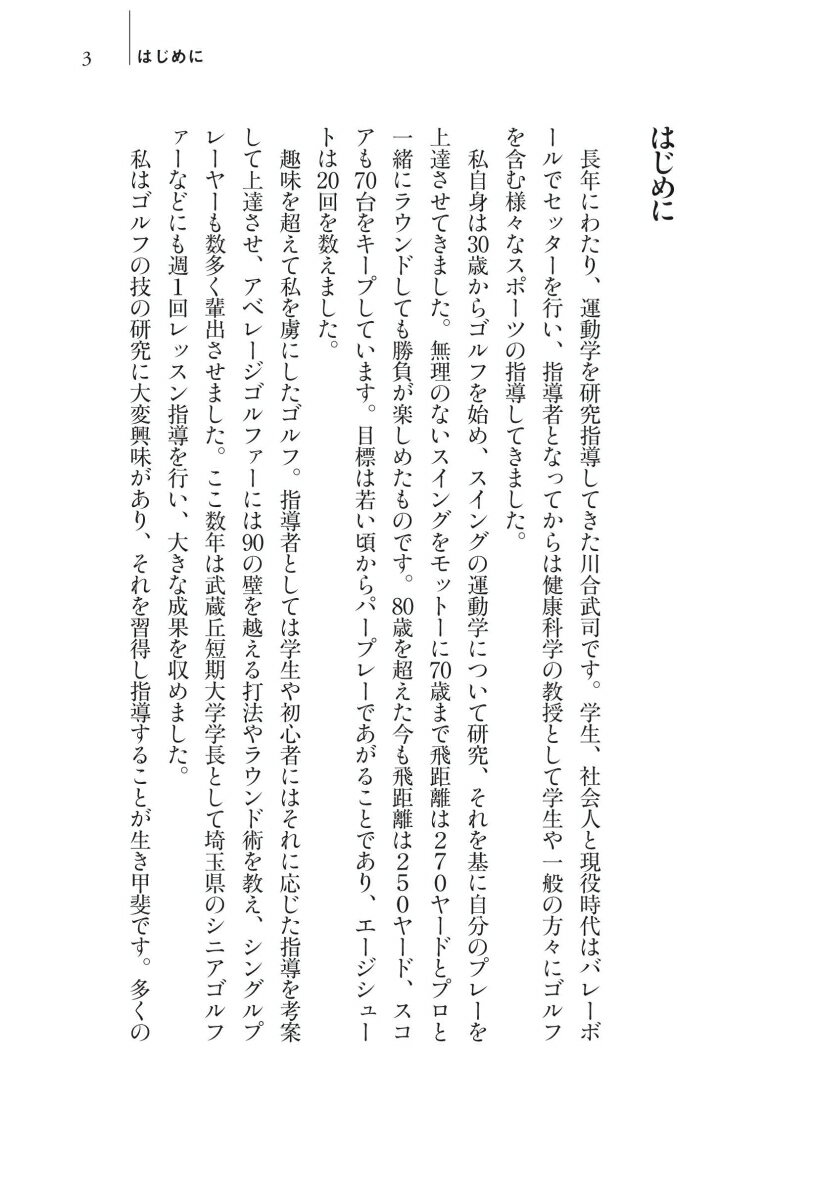 3
はじめに
はじめに
長年にわたり、運動学を研究指導してきた川合武司です。学生、社会人と現役時代はバレーボ
ールでセッターを行い、指導者となってからは健康科学の教授として学生や一般の方々にゴルフ
を含む様々なスポーツの指導してきました。
私自身は30歳からゴルフを始め、スイングの運動学について研究、それを基に自分のプレーを
上達させてきました。無理のないスイングをモットーに70歳まで飛距離は270ヤードとプロと
一緒にラウンドしても勝負が楽しめたものです。80歳を超えた今も飛距離は250ヤード、スコ
アも70台をキープしています。目標は若い頃からパープレーであがることであり、エージシュー
トは20回を数えました。
趣味を超えて私を虜にしたゴルフ。指導者としては学生や初心者にはそれに応じた指導を考案
して上達させ、アベレージゴルファーには90の壁を越える打法やラウンド術を教え、シングルプ
レーヤーも数多く輩出させました。ここ数年は武蔵丘短期大学学長として埼玉県のシニアゴルフ
ァーなどにも週1回レッスン指導を行い、大きな成果を収めました。
私はゴルフの技の研究に大変興味があり、それを習得し指導することが生き甲斐です。多くの